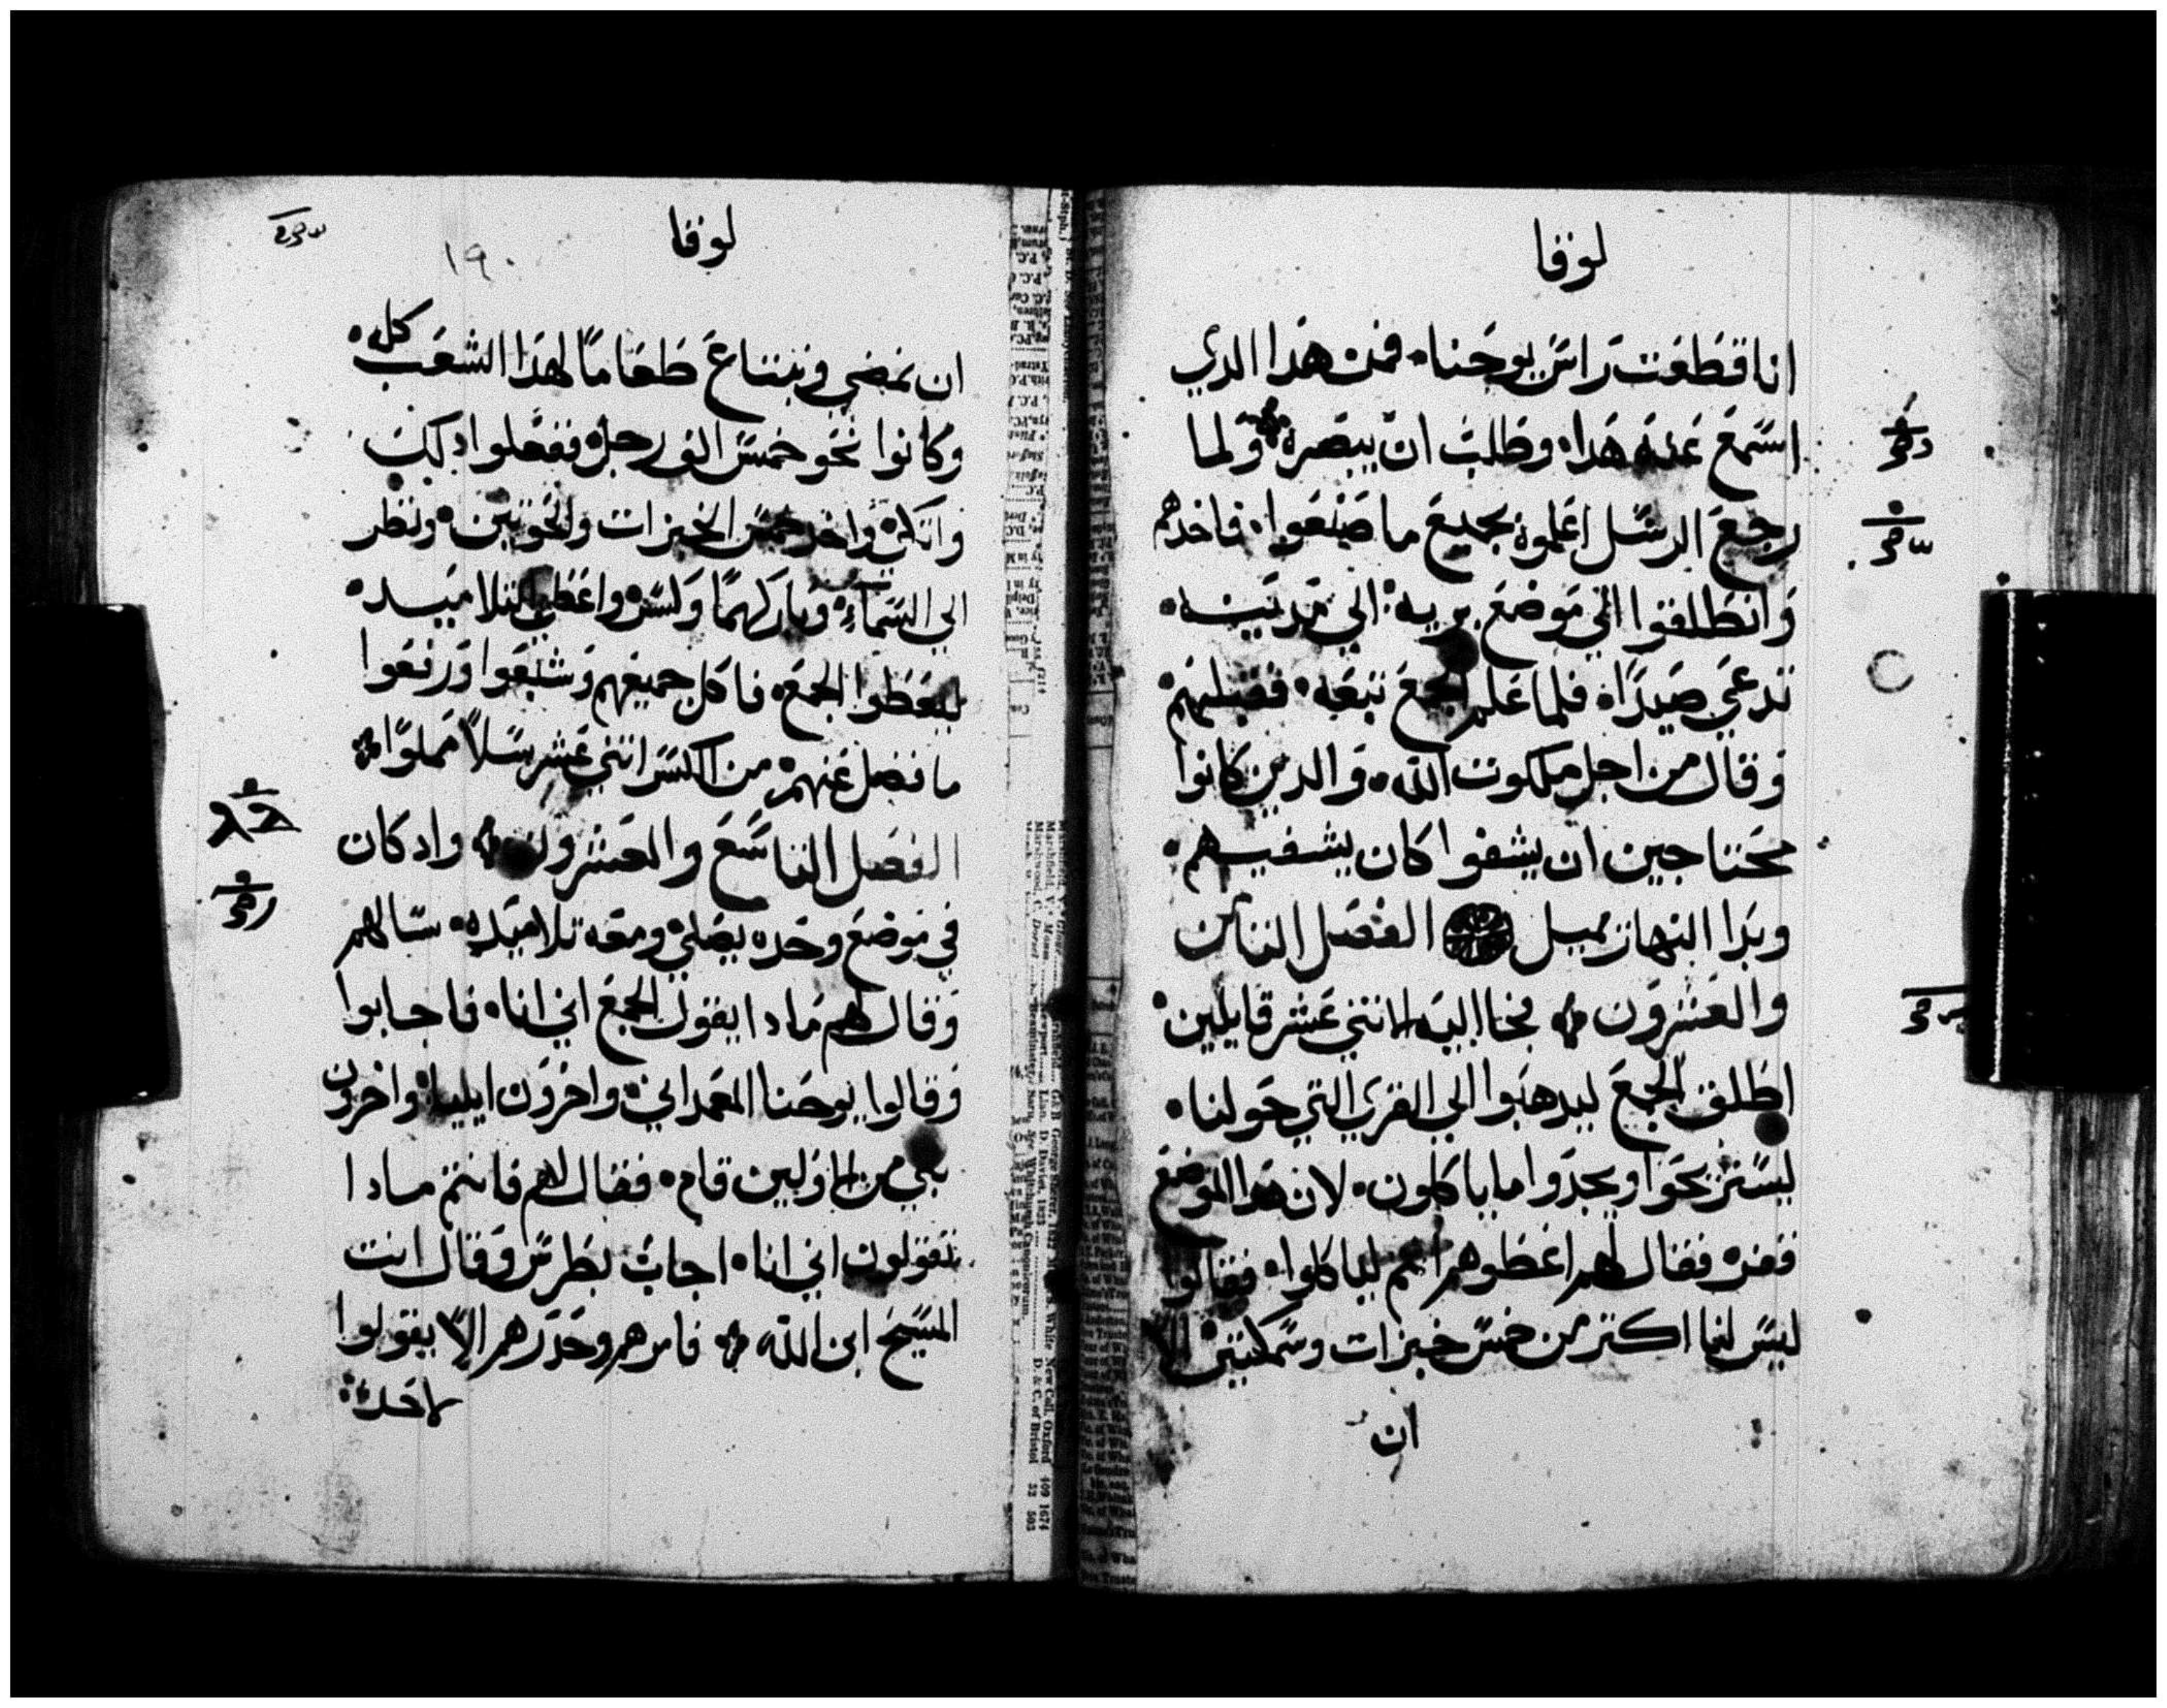 لوقا
انا قطعت راس يوحنا فمن هدا الدي
استمع عنه هدا وطلب ان يبصره ولما
رجع الرسل اعلموه بجميع ما صنعوا فاخدهم
وانطلقوا الي موضع بريه الي مدينه
تدعي صيدا فلما علم الجمع تبعه فقبلهم
وقال من اجل ملكوت الله والدين كانوا
محتاجين ان يشفوا كان يشفيهم
وبدا النهار يميل الفصل التامن
والعشرون فجا اليه الاتني عشر قايلين
اطلق الجمع ليدهبوا الي القري التي حولنا
ليستريحوا ويجدوا ما ياكلون لان هدا الموضع
قفره فقال لهم اعطوهم انتم لياكلوا فقالوا
ليس لنا اكتر من خمس خبزات وسمكتين الا
ان
لوقا
١٩٠
ان نمضي ونبتاع طعاما لهدا الشعب كله
وكانوا نحو خمس الف رجل ففعلوا دلك
واتكوا واخد خمس الخبزات والحوتين ونظر
الي السماء وباركهما وكسر واعطي لتلاميده
ليعطوا الجمع فاكل جميعهم وشبعوا ورفعوا
ما فضل عنهم من الكسر اتني عشر سلا مملوا
الفصل التاسع والعشرون واد كان
في موضع وحده يصلي ومعه تلاميده سالهم
وقال لهم مادا يقول الجمع اني انا فاجابوا
وقالوا يوحنا المعمداني واخرون ايليا واخرون
نبي من الاولين قام فقال لهم فانتم مادا
تقولون اني انا اجاب بطرس وقال انت
المسيح ابن الله فامرهم وحدرهم الا يقولوا
لاحد